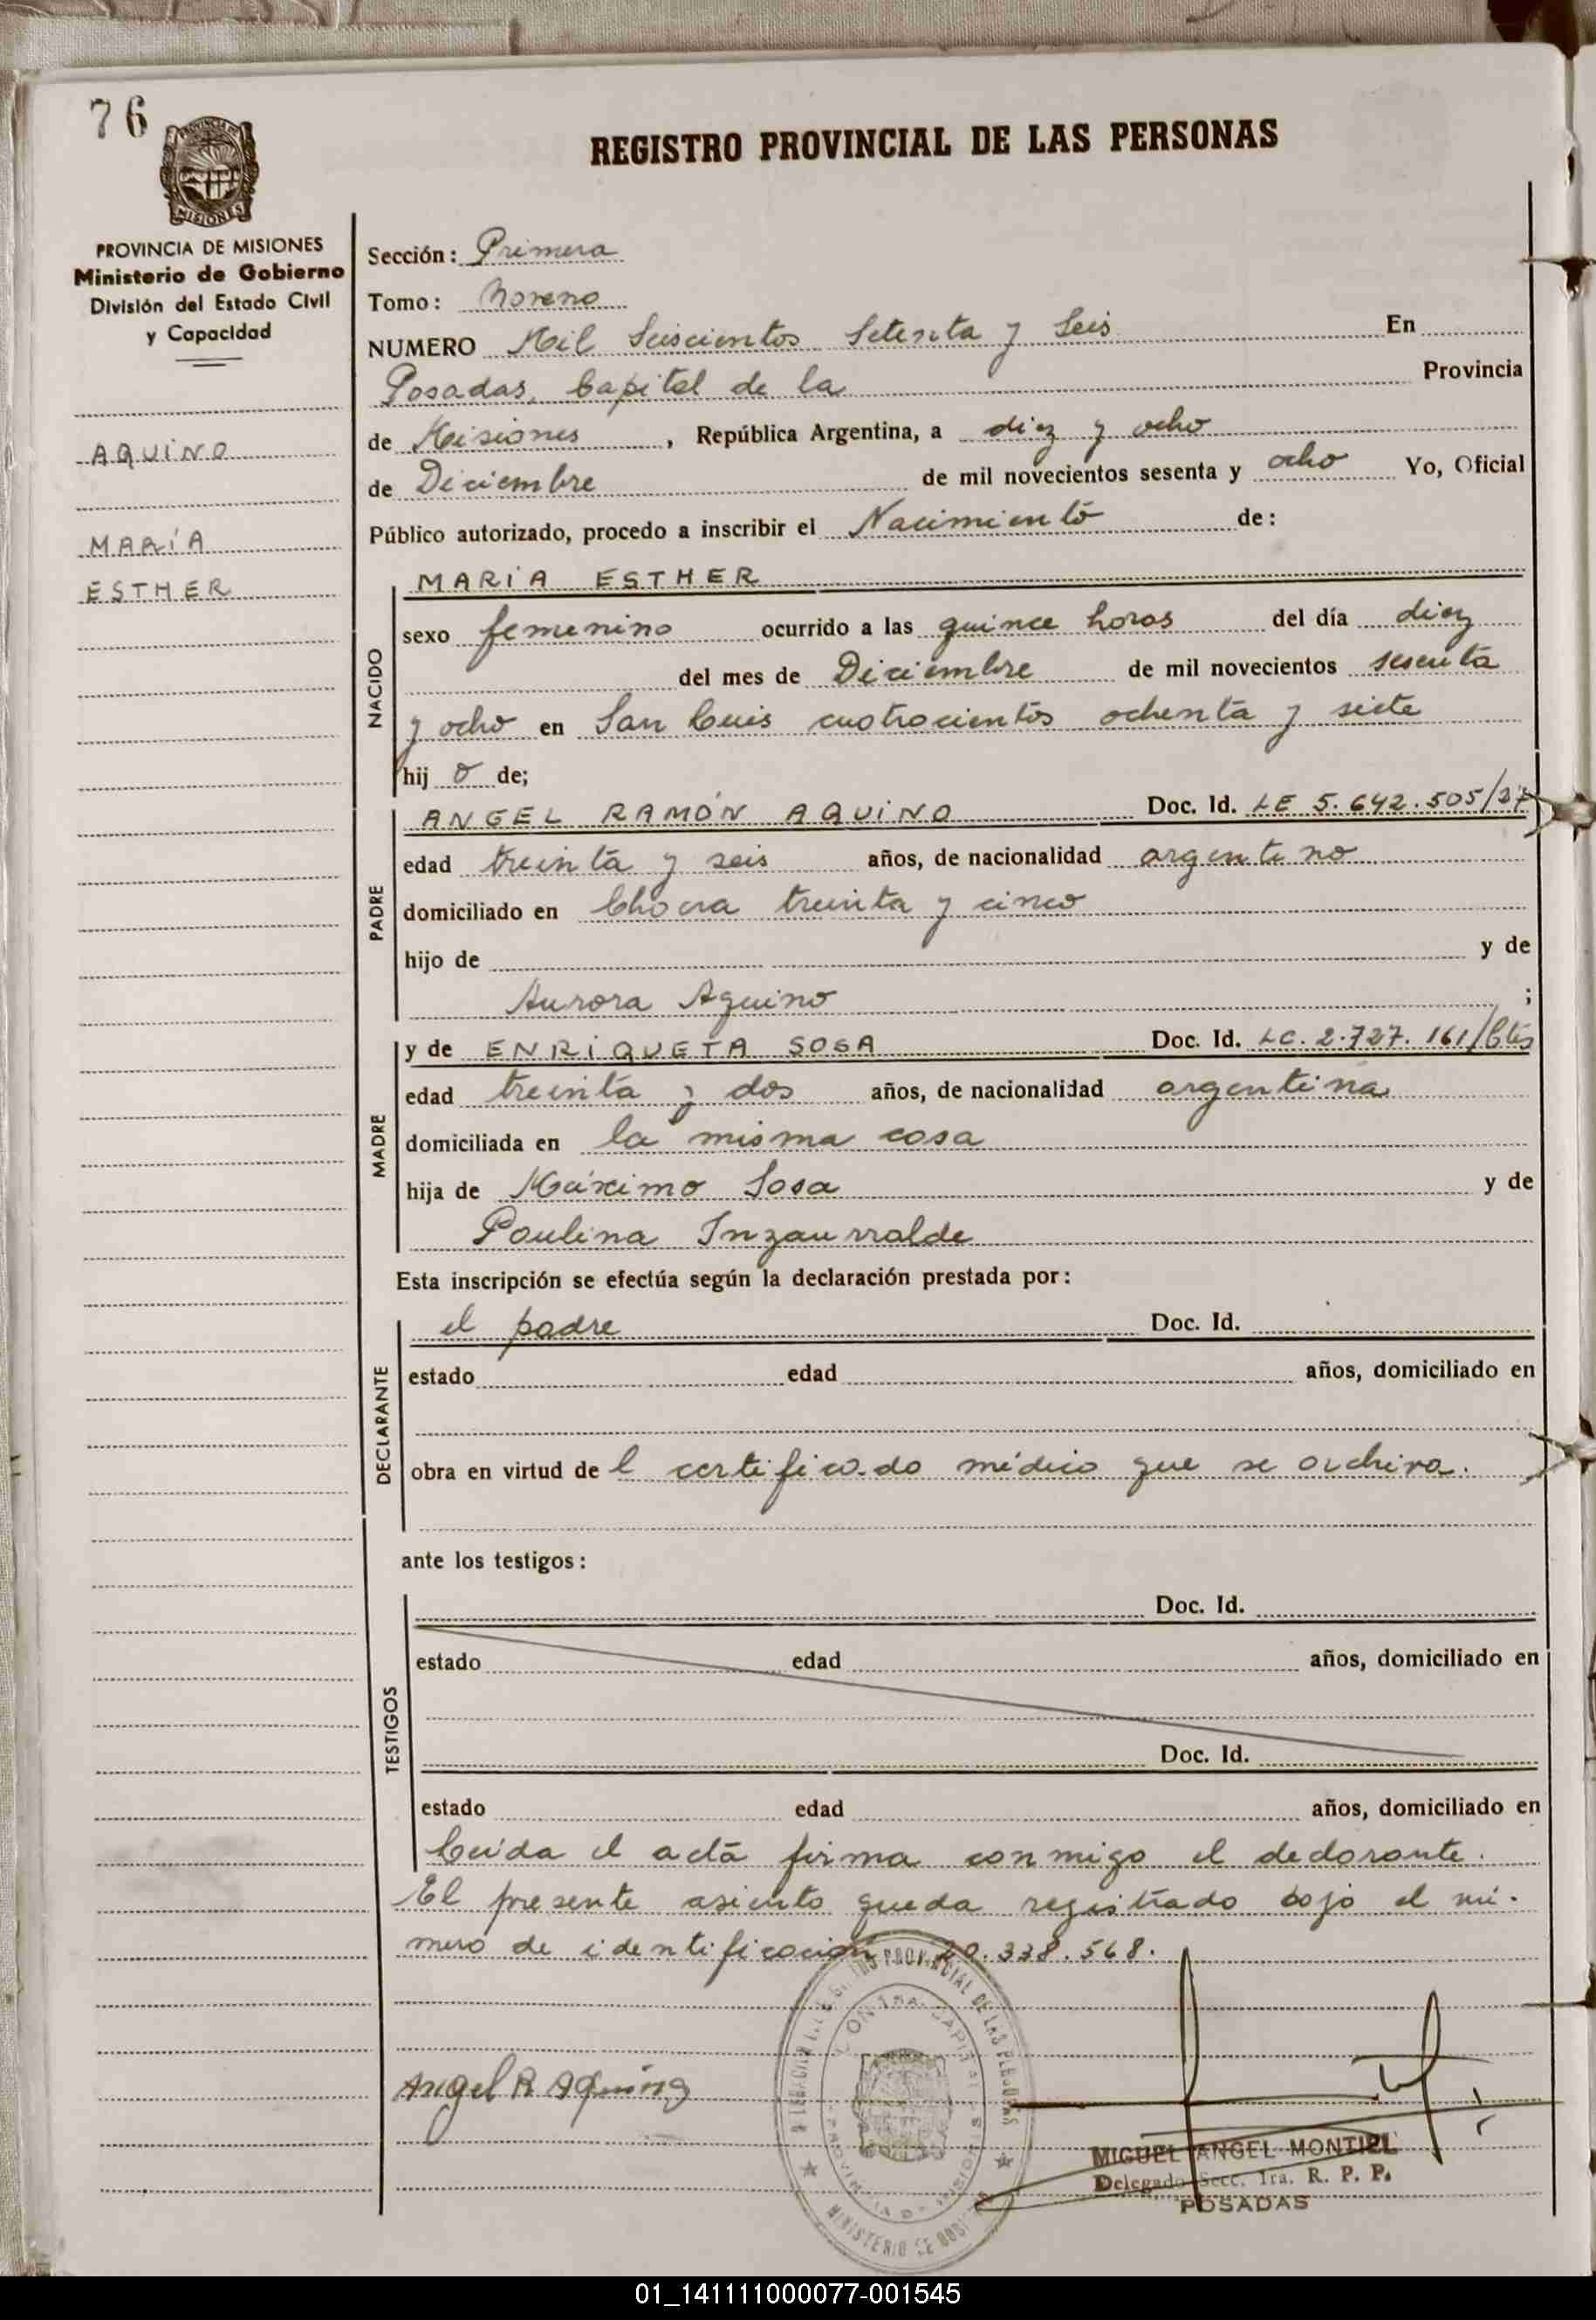 76
REGISTRO PROVINCIAL DE LAS PERSONAS
PROVINCIA DE MISIONES
Ministerio de Gobierno
División del Estado Civil
y Capacidad
AQUINO
MARÍA
ESTHER
Sección: Primera
Tomo: Noveno
NUMERO Mil Seiscientos Setenta y Seis En
Posadas, Capital de la Provincia
de Misiones, República Argentina, a diez y ocho
de Diciembre de mil novecientos sesenta y ocho Yo, Oficial
Público autorizado, procedo a inscribir el Nacimiento de:
NACIDO
MARÍA ESTHER
sexo femenino ocurrido a las quince horas del día diez
del mes de Diciembre de mil novecientos sesenta
y ocho en San Luis cuatrocientos ochenta y siete
hij a de;
PADRE
ANGEL RAMÓN AQUINO Doc. Id. LE 5.642.505/37
edad treinta y seis años, de nacionalidad argentino
domiciliado en Chacra treinta y cinco
hijo de y de
Aurora Aquino ;
MADRE
y de ENRIQUETA SOSA Doc. Id. LC. 2.727.161/Ctes
edad treinta y dos años, de nacionalidad argentina
domiciliada en la misma casa
hija de Máximo Sosa y de
Paulina Inzaurralde
Esta inscripción se efectúa según la declaración prestada por:
DECLARANTE
el padre Doc. Id.
estado edad años, domiciliado en
obra en virtud de l certificado médico que se archiva.
ante los testigos:
TESTIGOS
Doc. Id.
estado edad años, domiciliado en
Doc. Id.
estado edad años, domiciliado en
Leída el acta firma conmigo el declarante.
El presente asiento queda registrado bajo el nú-
mero de identificación 20.338.568.
Angel R Aquino
MIGUEL ANGEL MONTIEL
Delegado Secc. 1ra. R. P. P.
POSADAS
01_141111000077-001545